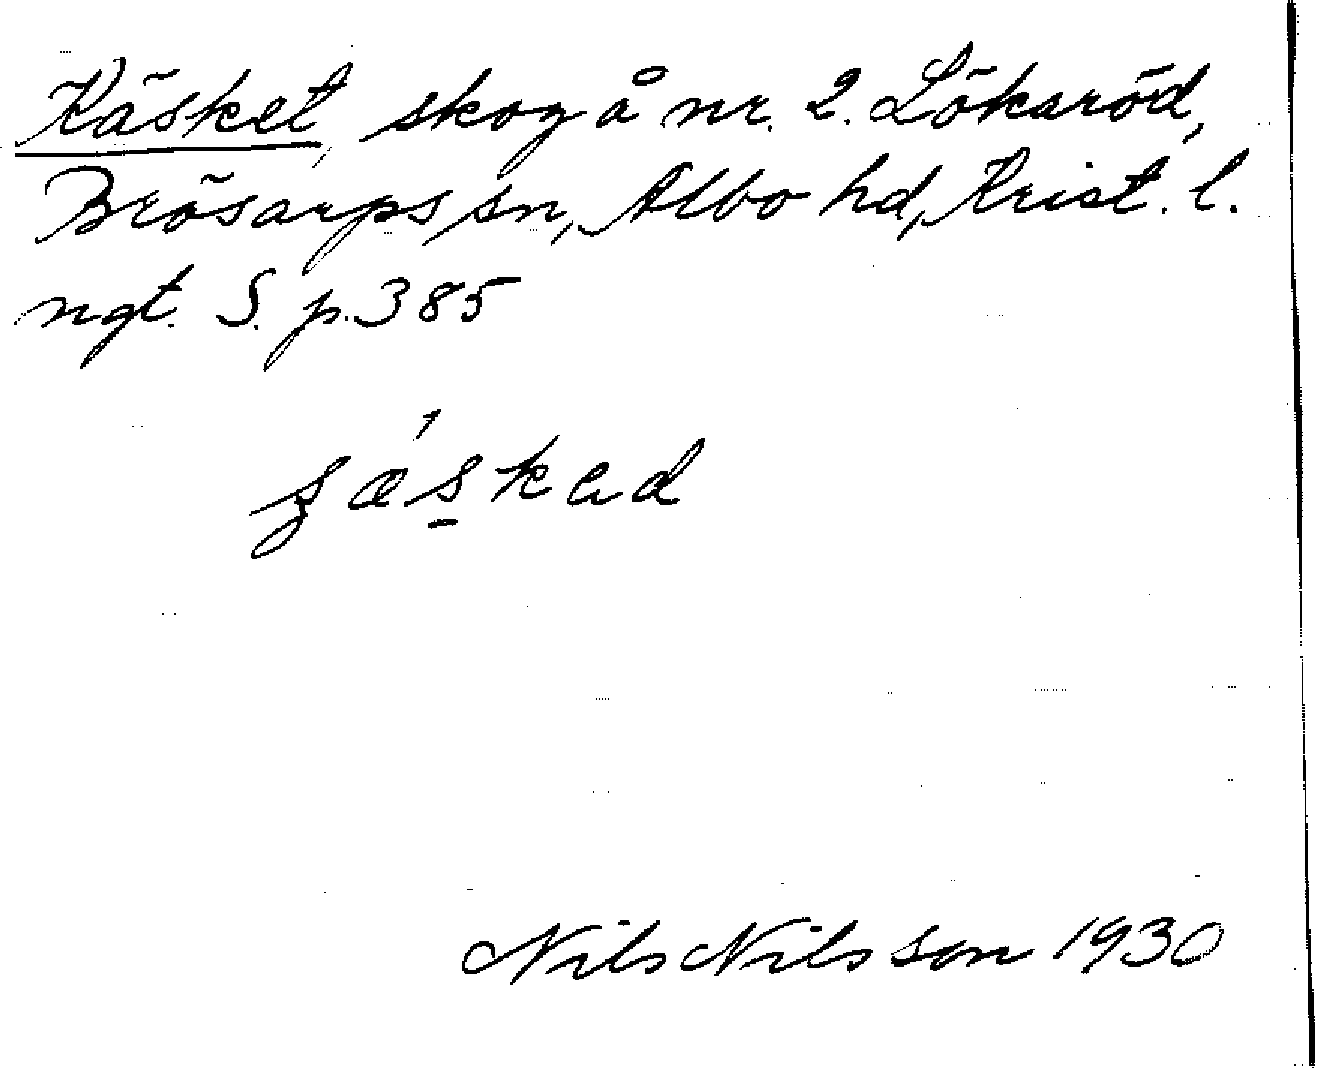 Käsket, skog å nr. 2. Löksröd,
Brösarps sn, Albo hd, Krist. l.
ngt. S. p. 385
Nils Nilsson 1930